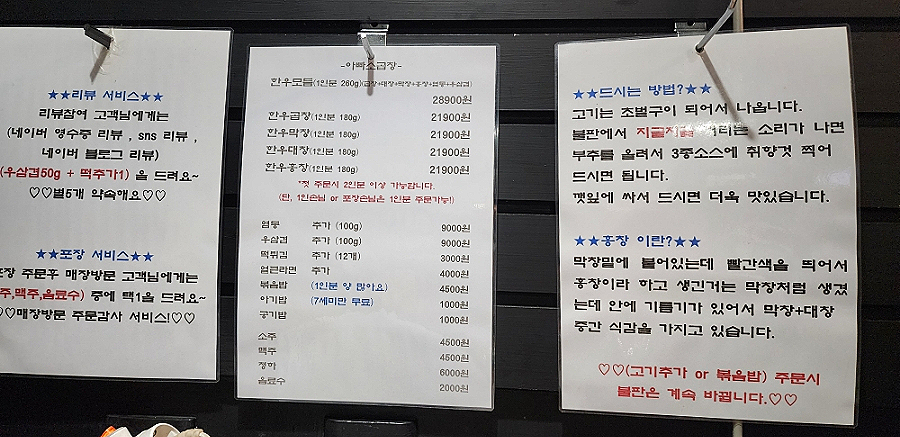 ★★리뷰 서비스★★
리뷰참여 고객님에게는
(네이버 영수증 리뷰 , sns 리뷰 ,
네이버 블로그 리뷰)
(우삼겹50g + 떡추가1) 을 드려요~
♡♡별5개 약속해요♡♡
★★포장 서비스★★
주문후 매장방문 고객님에게는
맥주,음료수) 중에 택1을 드려요~
♡매장방문 주문감사 서비스!♡♡
-아빠소곱창-
한우모듬(1인분 260g)(곱창+대창+막창+홍창+염통+우삼겹)
28900원
한우곱창(1인분 180g) 21900원
한우막창(1인분 180g) 21900원
한우대창(1인분 180g) 21900원
한우홍창(1인분 180g) 21900원
*첫 주문시 2인분 이상 가능합니다.
(단, 1인손님 or 포장손님은 1인분 주문가능!)
염통 추가 (100g) 9000원
우삼겹 추가 (100g) 9000원
떡튀김 추가 (12개) 3000원
얼큰라면 추가 4000원
볶음밥 (1인분 양 많아요) 4500원
아기밥 (7세미만 무료) 1000원
공기밥 1000원
소주 4500원
맥주 4500원
청하 6000원
음료수 2000원
★★드시는 방법?★★
고기는 초벌구이 되어서 나옵니다.
불판에서 지글지글 거리는 소리가 나면
부추를 올려서 3종소스에 취향껏 찍어
드시면 됩니다.
깻잎에 싸서 드시면 더욱 맛있습니다.
★★홍창 이란?★★
막창밑에 붙어있는데 빨간색을 띄어서
홍창이라 하고 생긴거는 막창처럼 생겼
는데 안에 기름기가 있어서 막창+대창
중간 식감을 가지고 있습니다.
♡♡(고기추가 or 볶음밥) 주문시
불판은 계속 바뀝니다.♡♡